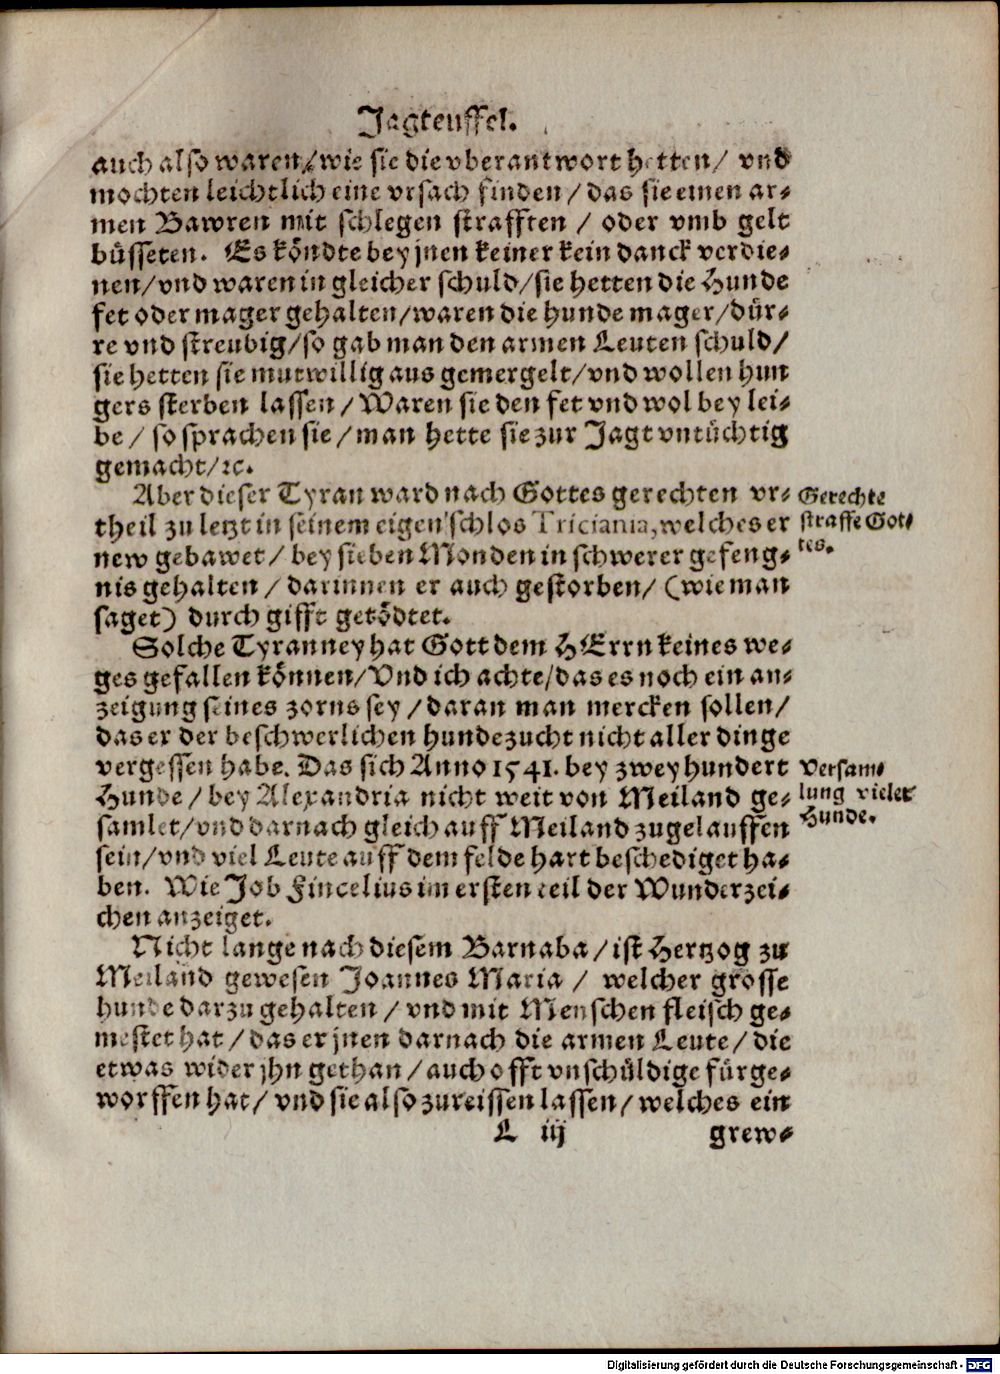 Jagteuffel.
auch also waren/wie sie die vberantwort hetten/ vnd
mochten leichtlich eine vrsach finden/das sie einen ar-
men Bawren mit schlegen strafften / oder vmb gelt
büsseten. Es köndte bey jnen keiner kein danck verdie-
nen/vnd waren in gleicher schuld/sie hetten die Hunde
fet oder mager gehalten/waren die hunde mager/dür-
re vnd streubig/so gab man den armen Leuten schuld/
sie hetten sie mutwillig aus gemergelt/vnd wollen hun
gers sterben lassen/Waren sie den fet vnd wol bey lei-
be/ so sprachen sie/man hette sie zur Jagt vntüchtig
gemacht/ꝛc.
Aber dieser Tyran ward nach Gottes gerechten vr-
theil zu letzt in seinem eigen schlos Triciania, welches er
new gebawet/ bey sieben Monden in schwerer gefeng-
nis gehalten / darinnen er auch gestorben/ (wie man
saget) durch gifft getödtet.
Gerechte
straffe Got-
tes.
Solche Tyranney hat Gott dem HErrn keines we-
ges gefallen können/Vnd ich achte/das es noch ein an-
zeigung seines zorns sey/daran man mercken sollen/
das er der beschwerlichen hundezucht nicht aller dinge
vergessen habe. Das sich Anno 1541. bey zweyhundert
Hunde/ bey Alexandria nicht weit von Meiland ge-
samlet/vnd darnach gleich auff Meiland zugelauffen
sein/vnd viel Leute auff dem felde hart beschediget ha-
ben. Wie Job Fincelius im ersten teil der Wunderzei-
chen anzeiget.
Versam-
lung vieler
Hunde.
Nicht lange nach diesem Barnaba/ist Hertzog zu
Meiland gewesen Joannes Maria / welcher grosse
hunde darzu gehalten/vnd mit Menschen fleisch ge-
mestet hat/das er jnen darnach die armen Leute/die
etwas wider jhn gethan/auch offt vnschüldige fürge-
worffen hat/ vnd sie also zureissen lassen/welches ein
L iij
grew-
Digitalisierung gefördert durch die Deutsche Forschungsgemeinschaft - DFG